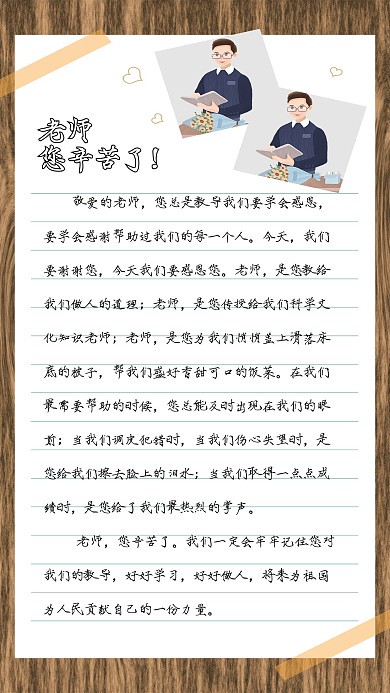 老师
您辛苦了!
敬爱的老师，您总是教导我们要学会感恩，
要学会感谢帮助过我们的每一个人。今天，我们
要谢谢您，今天我们要感恩您。老师，是您教给
我们做人的道理；老师，是您传授给我们科学文
化知识老师；老师，是您为我们悄悄盖上滑落床
底的被子，帮我们盛好香甜可口的饭菜。在我们
最需要帮助的时候，您总能及时出现在我们的眼
前；当我们调皮犯错时，当我们伤心失望时，是
您给我们擦去脸上的泪水；当我们取得一点点成
绩时，是您给了我们最热烈的掌声。
老师，您辛苦了。我们一定会牢牢记住您对
我们的教导，好好学习，好好做人，将来为祖国
为人民贡献自己的一份力量。